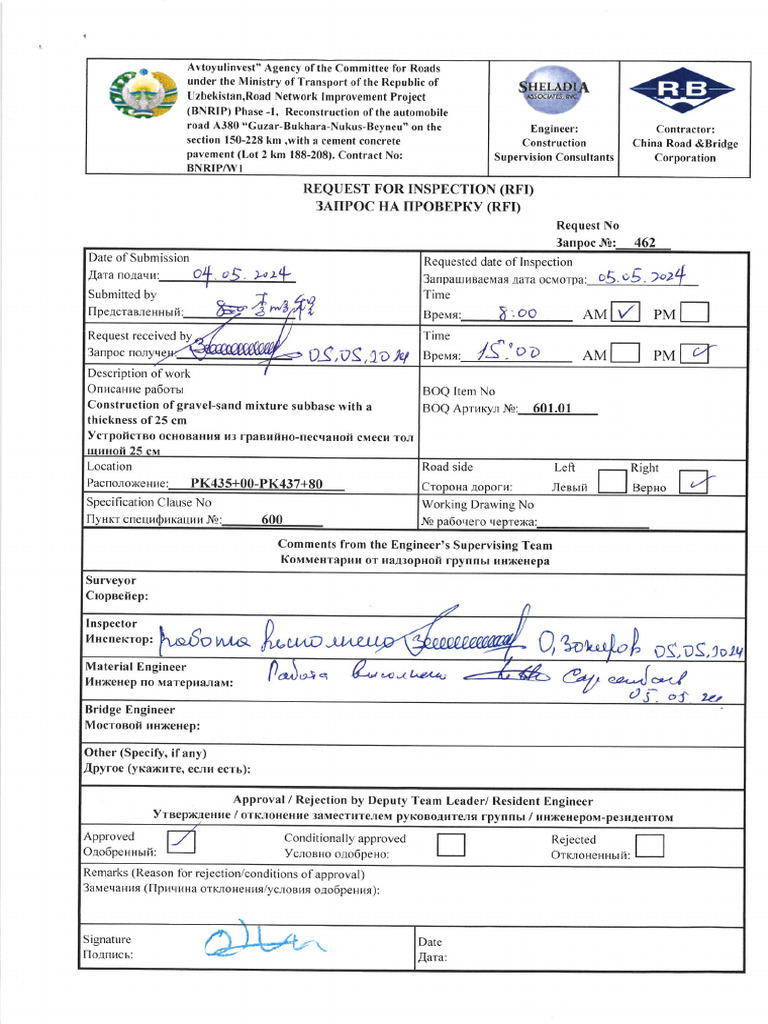 Avtoyulinvest" Agency of the Committee for Roads
under the Ministry of Transport of the Republic of
Uzbekistan,Road Network Improvement Project
(BNRIP) Phase -1, Reconstruction of the automobile
road A380 "Guzar-Bukhara-Nukus-Beyneu" on the
section 150-228 km ,with a cement concrete
pavement (Lot 2 km 188-208). Contract No:
BNRIP/W1
SHELADIA
ASSOCIATES, INC.
Engineer:
Construction
Supervision Consultants
RB
Contractor:
China Road &Bridge
Corporation
REQUEST FOR INSPECTION (RFI)
ЗАПРОС НА ПРОВЕРКУ (RFI)
Request No
Запрос №: 462
Date of Submission
Дата подачи: 04.05.2024
Requested date of Inspection
Запрашиваемая дата осмотра: 05.05.2024
Submitted by
Представленный:
Time
Время: 8:00 AM ✓ PM
Request received by
Запрос получен: 05,05,2024
Time
Время: 15:00 AM PM ✓
Description of work
Описание работы
Construction of gravel-sand mixture subbase with a
thickness of 25 cm
Устройство основания из гравийно-песчаной смеси тол
щиной 25 см
BOQ Item No
BOQ Артикул №: 601.01
Location
Расположение: PK435+00-PK437+80
Road side Left Right
Сторона дороги: Левый Верно ✓
Specification Clause No
Пункт спецификации №: 600
Working Drawing No
№ рабочего чертежа:
Comments from the Engineer's Supervising Team
Комментарии от надзорной группы инженера
Surveyor
Сюрвейер:
Inspector
Инспектор: работа выполнено О,Зокиров 05,05,2024
Material Engineer
Инженер по материалам: Работа выполнено
05.05.24
Bridge Engineer
Мостовой инженер:
Other (Specify, if any)
Другое (укажите, если есть):
Approval / Rejection by Deputy Team Leader/ Resident Engineer
Утверждение / отклонение заместителем руководителя группы / инженером-резидентом
Approved Conditionally approved Rejected
Одобренный: ✓ Условно одобрено: Отклоненный:
Remarks (Reason for rejection/conditions of approval)
Замечания (Причина отклонения/условия одобрения):
Signature
Подпись:
Date
Дата: